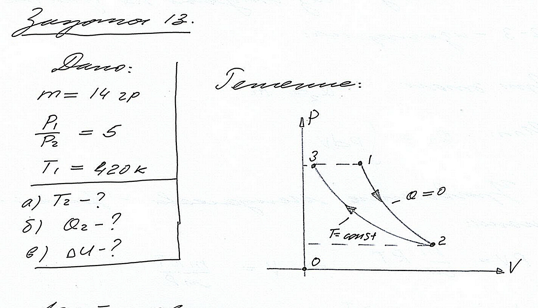 Задача 13.
Дано:
m = 14 гр
P₁/P₂ = 5
T₁ = 420 к
а) T₂ - ?
б) Q₂ - ?
в) ΔU - ?
Решение:
P
3
1
Q = 0
T = const
2
0
V